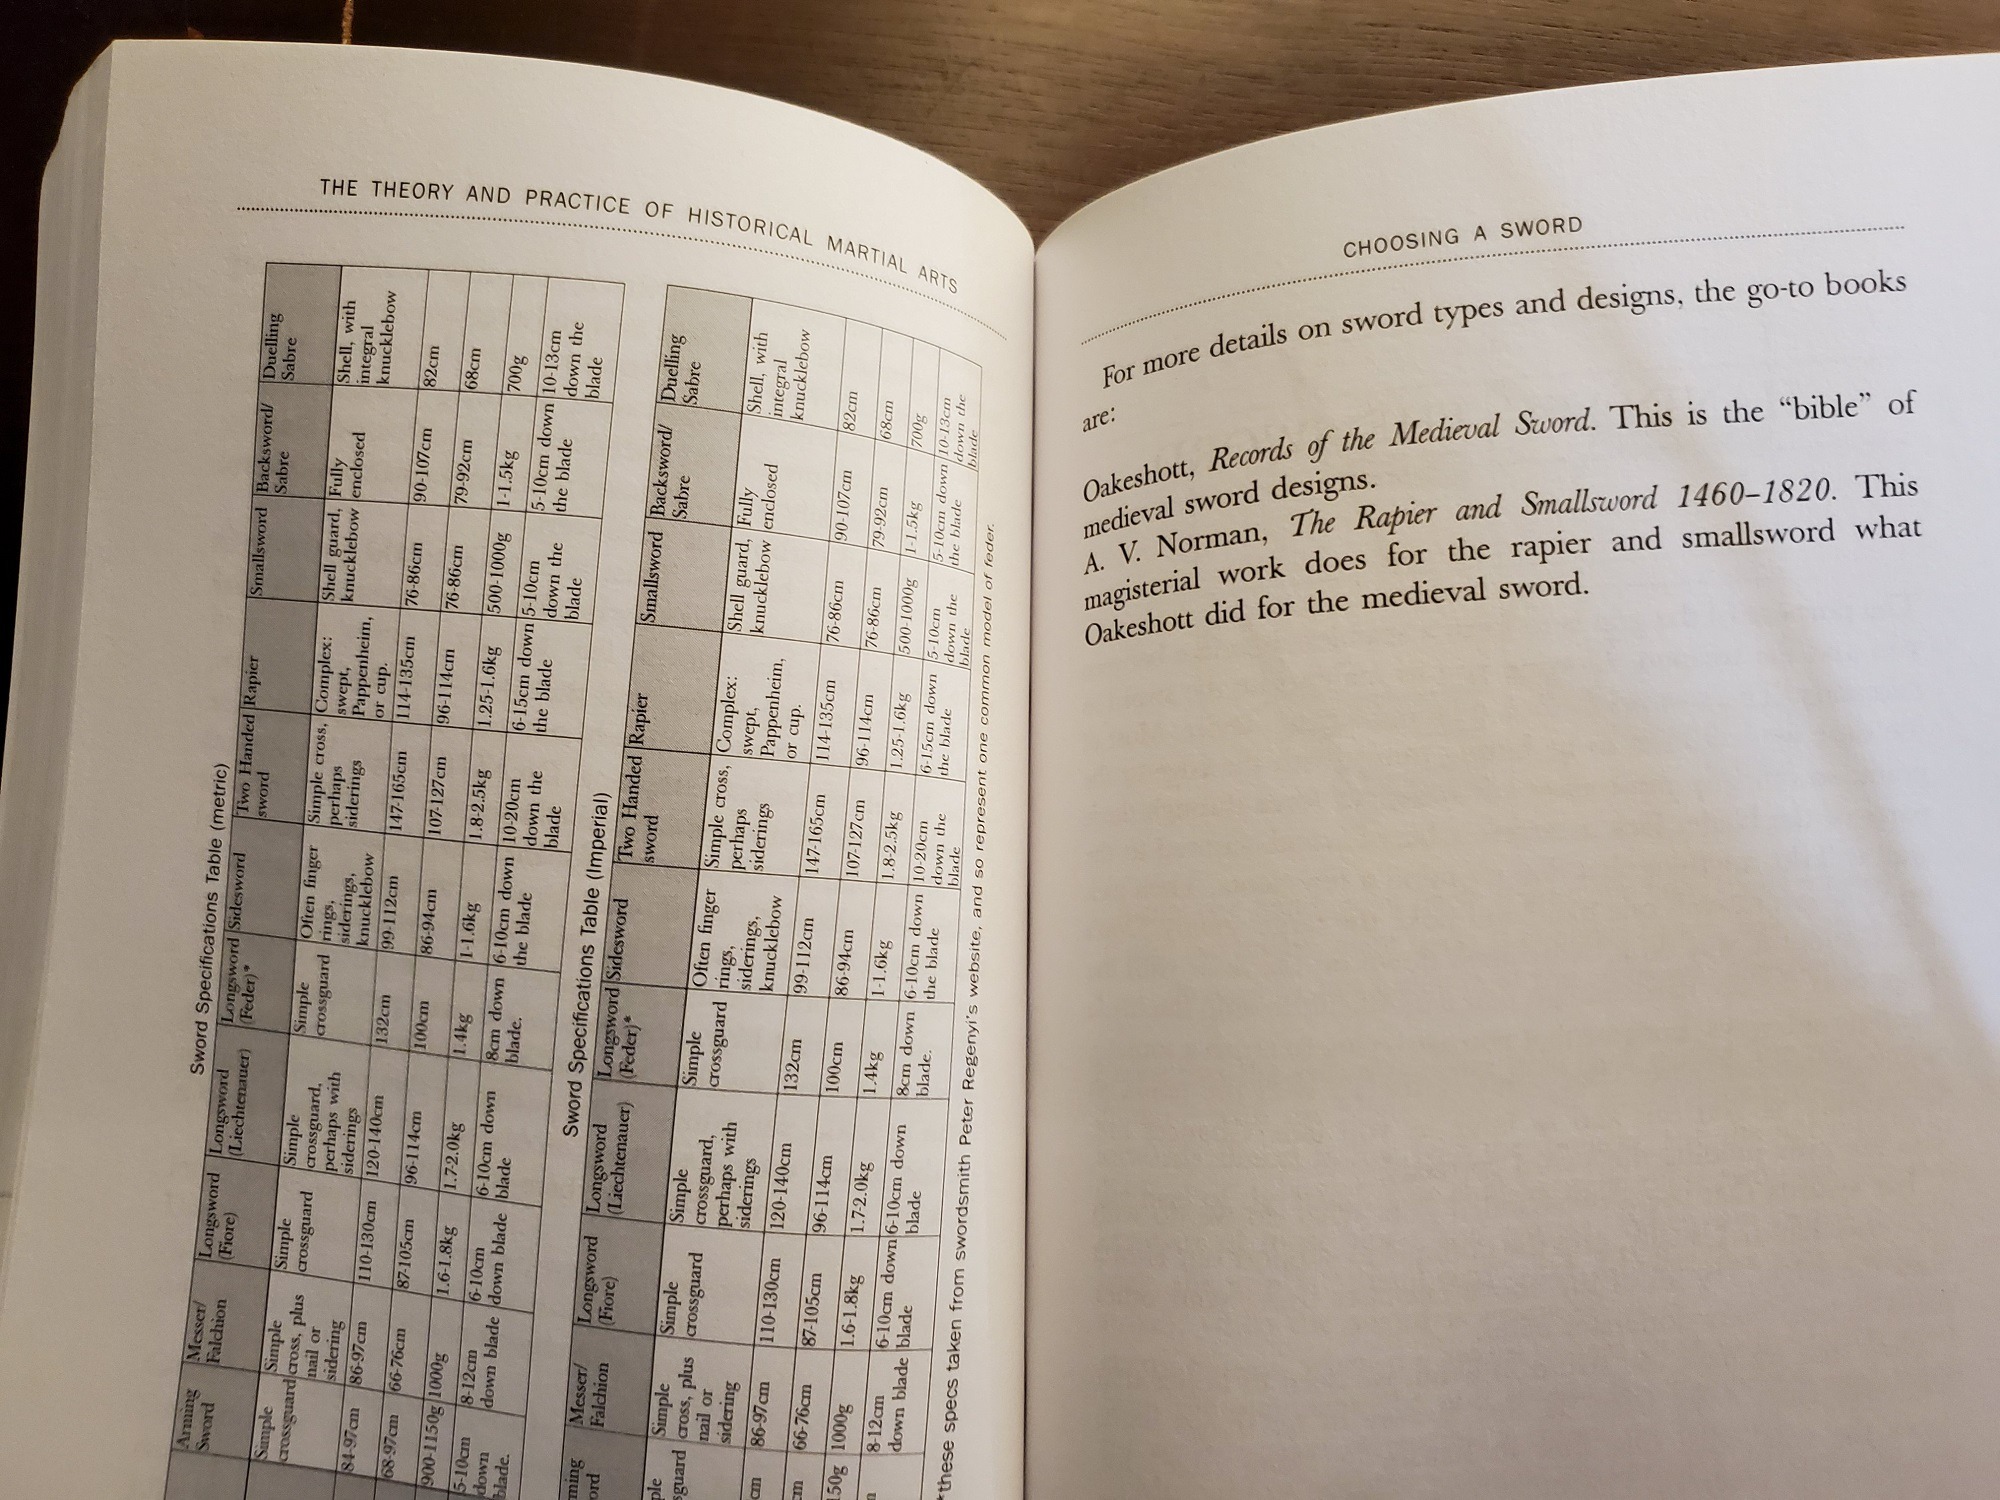 THE THEORY AND PRACTICE OF HISTORICAL MARTIAL ARTS
Sword Specifications Table (metric)
Arming
Sword
Messer/
Falchion
Longsword
(Fiore)
Longsword
(Liechtenauer)
Longsword
(Feder)*
Sidesword
Two Handed
sword
Rapier
Smallsword
Backsword/
Sabre
Duelling
Sabre
Simple
crossguard
Simple
cross, plus
nail or
sidering
Simple
crossguard
Simple
crossguard,
perhaps with
siderings
Simple
crossguard
Often finger
rings,
siderings,
knucklebow
Simple cross,
perhaps
siderings
Complex:
swept,
Pappenheim,
or cup.
Shell guard,
knucklebow
Fully
enclosed
Shell, with
integral
knucklebow
84-97cm
86-97cm
110-130cm
120-140cm
132cm
99-112cm
147-165cm
114-135cm
76-86cm
90-107cm
82cm
68-97cm
66-76cm
87-105cm
96-114cm
100cm
86-94cm
107-127cm
96-114cm
76-86cm
79-92cm
68cm
900-1150g
1000g
1.6-1.8kg
1.7-2.0kg
1.4kg
1-1.6kg
1.8-2.5kg
1.25-1.6kg
500-1000g
1-1.5kg
700g
5-10cm
down
blade.
8-12cm
down blade
6-10cm
down blade
6-10cm down
blade
8cm down
blade.
6-10cm down
the blade
10-20cm
down the
blade
6-15cm down
the blade
5-10cm
down the
blade
5-10cm down
the blade
10-13cm
down the
blade
Sword Specifications Table (Imperial)
ming
ord
Messer/
Falchion
Longsword
(Fiore)
Longsword
(Liechtenauer)
Longsword
(Feder)*
Sidesword
Two Handed
sword
Rapier
Smallsword
Backsword/
Sabre
Duelling
Sabre
ple
sguard
Simple
cross, plus
nail or
sidering
Simple
crossguard
Simple
crossguard,
perhaps with
siderings
Simple
crossguard
Often finger
rings,
siderings,
knucklebow
Simple cross,
perhaps
siderings
Complex:
swept,
Pappenheim,
or cup.
Shell guard,
knucklebow
Fully
enclosed
Shell, with
integral
knucklebow
cm
86-97cm
110-130cm
120-140cm
132cm
99-112cm
147-165cm
114-135cm
76-86cm
90-107cm
82cm
cm
66-76cm
87-105cm
96-114cm
100cm
86-94cm
107-127cm
96-114cm
76-86cm
79-92cm
68cm
150g
1000g
1.6-1.8kg
1.7-2.0kg
1.4kg
1-1.6kg
1.8-2.5kg
1.25-1.6kg
500-1000g
1-1.5kg
700g
8-12cm
down blade
6-10cm down
blade
6-10cm down
blade
8cm down
blade.
6-10cm down
the blade
10-20cm
down the
blade
6-15cm down
the blade
5-10cm
down the
blade
5-10cm down
the blade
10-13cm
down the
blade
*these specs taken from swordsmith Peter Regenyi's website, and so represent one common model of feder.
CHOOSING A SWORD
For more details on sword types and designs, the go-to books
are:
Oakeshott, Records of the Medieval Sword. This is the “bible” of
medieval sword designs.
A. V. Norman, The Rapier and Smallsword 1460–1820. This
magisterial work does for the rapier and smallsword what
Oakeshott did for the medieval sword.